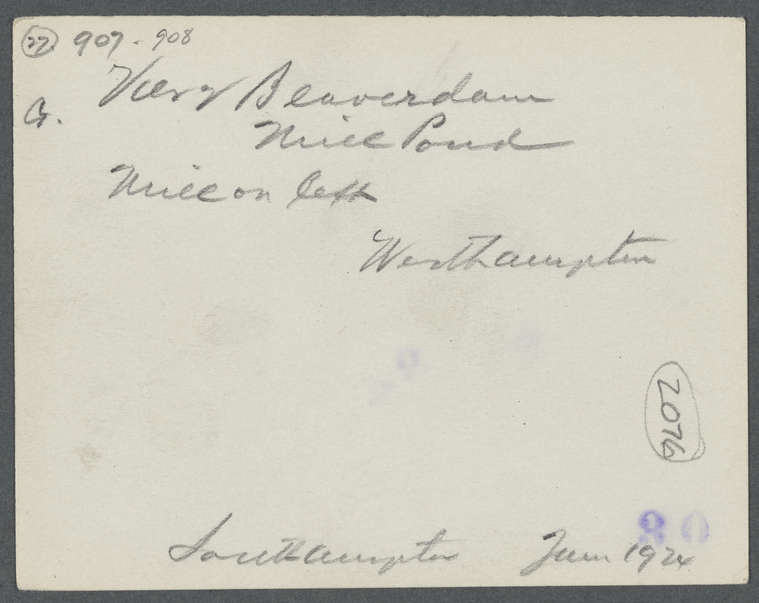 27 907 - 908
G. View Beaverdam
Mill Pond
Mill on left
Westhampton
2076
30
Southampton June 1924